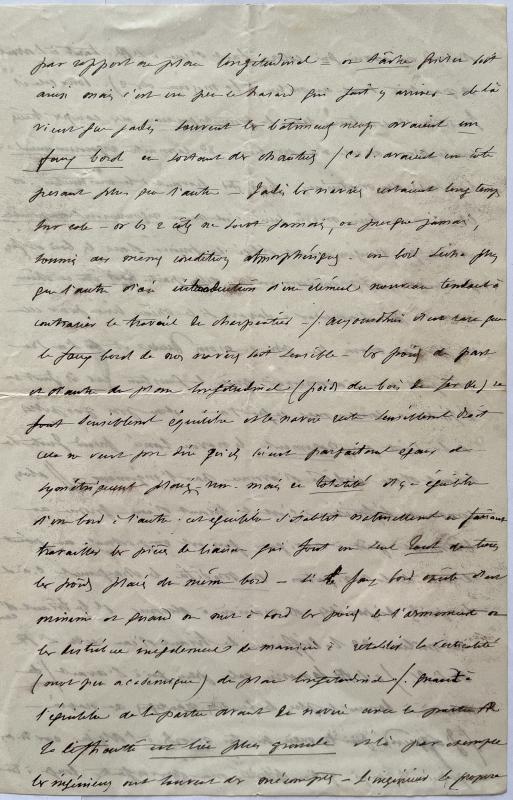 par rapport au plan longitudinal = on tâche qu'il en soit
ainsi mais c'est un peu le hasard qui fait y arriver - de là
vient que jadis souvent les bâtiments neufs avaient un
faux bord en sortant des chantiers / c.a.d. avaient un côté
pesant plus que l'autre. Jadis les navires restaient longtemps
sur cale - or les 2 côtés ne sont jamais, ou presque jamais,
soumis aux mêmes conditions atmosphériques. un bord sèche plus
que l'autre d'où introduction d'un élément nouveau tendant à
contrarier le travail du charpentier -/. aujourd'hui il est rare que
le faux bord de nos navires soit sensible - les poids de part
et d'autre du plan longitudinal (poids du bois du fer &c) se
font sensiblement équilibre et le navire reste sensiblement droit
cela ne veut pas dire qu'ils soient parfaitement égaux et
symétriquement placés, non. mais en totalité il y a équilibre
d'un bord à l'autre. cet équilibre s'établit naturellement en faisant
travailler les pièces de liaison qui font un seul tout de tous
les poids placés du même bord - si le faux bord existe il est
minime et quand on met à bord les poids de l'armement on
les distribue inégalement de manière à rétablir la verticalité
(mot peu académique) du plan longitudinal /. quant à
l'équilibre de la partie avant du navire avec la partie AR
la difficulté est bien plus grande et là par exemple
les ingénieurs ont souvent des mécomptes - L'ingénieur se propose